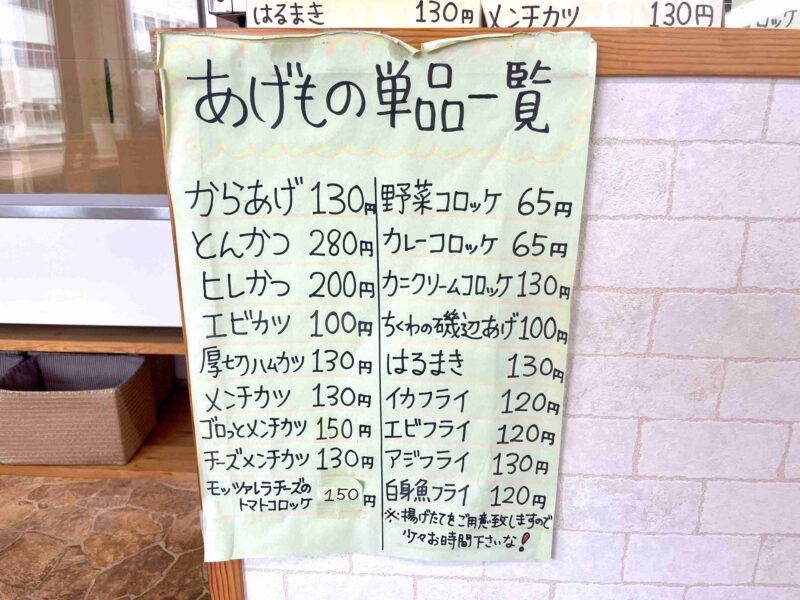 はるまき 130円 メンチカツ 130円 コロッケ
あげもの単品一覧
からあげ 130円
とんかつ 280円
ヒレかつ 200円
エビカツ 100円
厚切ハムカツ 130円
メンチカツ 130円
ゴロっとメンチカツ 150円
チーズメンチカツ 130円
モッツァレラチーズの
トマトコロッケ 150円
野菜コロッケ 65円
カレーコロッケ 65円
カニクリームコロッケ 130円
ちくわの磯辺あげ 100円
はるまき 130円
イカフライ 120円
エビフライ 120円
アジフライ 130円
白身魚フライ 120円
※揚げたてをご用意致しますので
少々お時間下さいな!